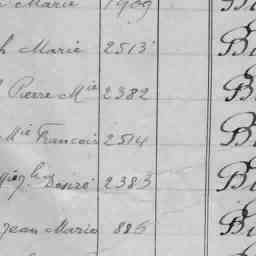 Marie 1909
h Marie 2513 B
Pierre Mie 2382 B
Mie Francois 2514 B
Désiré 2383 B
Jean Marie 886 B